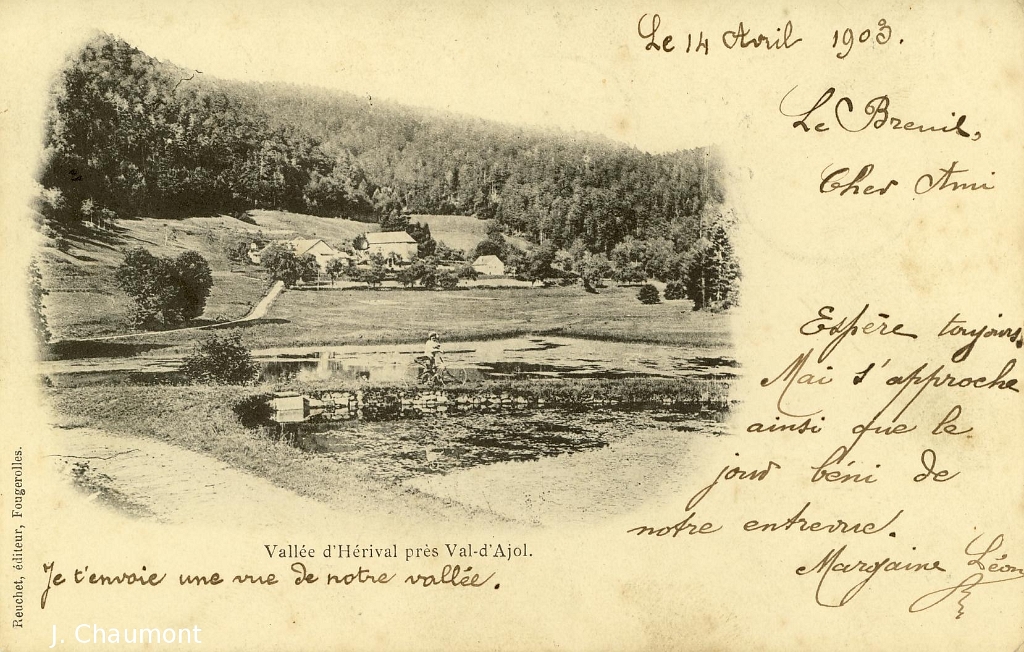 Le 14 Avril 1903.
Le Breuil,
Cher Ami
Espère toujours,
Mai s'approche
ainsi que le
jour béni de
notre entrevue.
Margaine Léon
Vallée d'Hérival près Val-d'Ajol.
Je t'envoie une vue de notre vallée.
Reuchet, éditeur, Fougerolles.
J. Chaumont